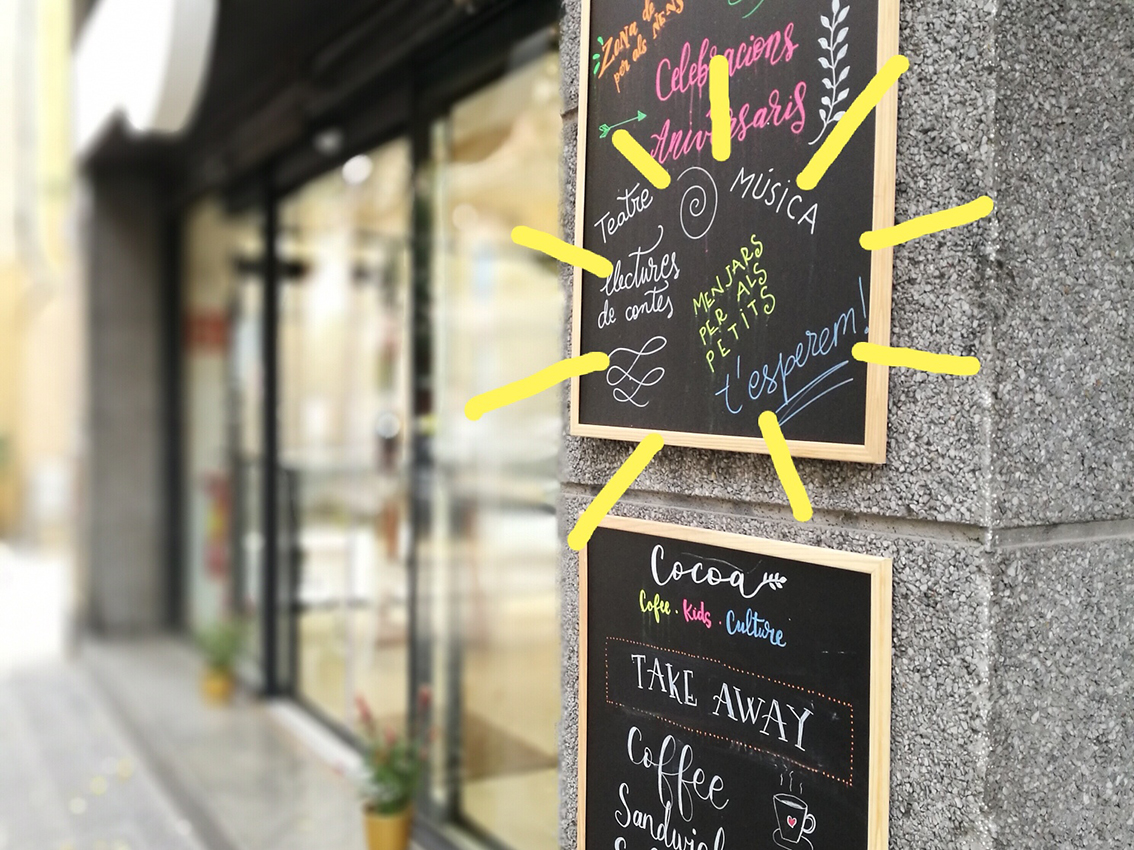 Zona de
per als nens
Celebracions
Aniversaris
Teatre
MÚSICA
llectures
de contes
MENJARS
PER ALS
PETITS
t'esperem!
Cocoa
Cofee · Kids · Culture
TAKE AWAY
Coffee